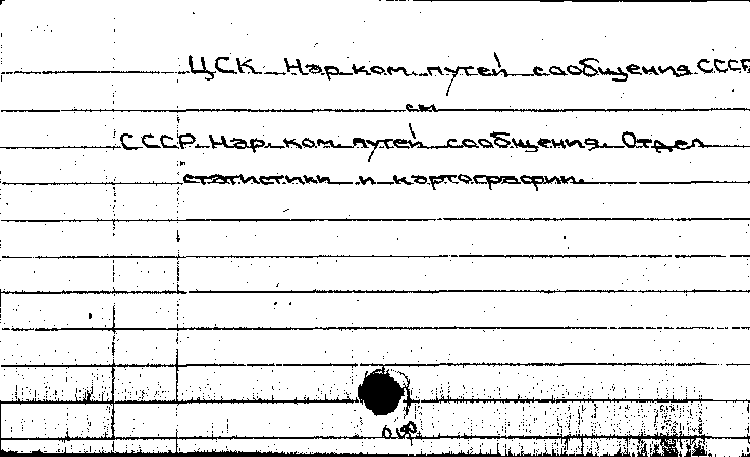 ЦСК Нар. ком. путей сообщения СССР
см.
СССР. Нар. ком. путей сообщения. Отдел
статистики и картографии.